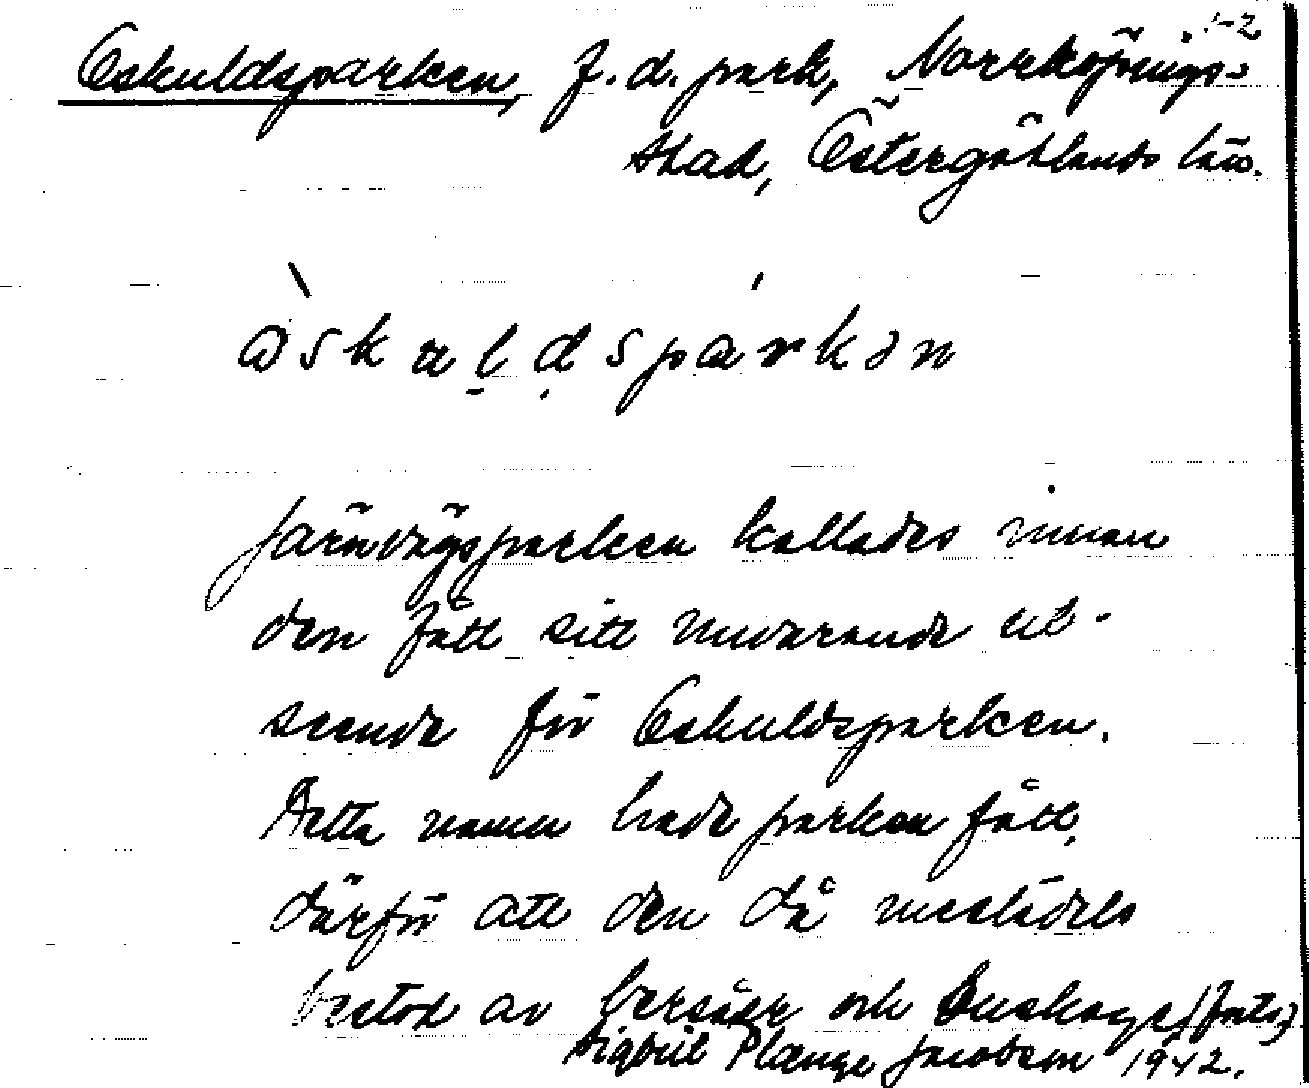 1-2
Oskuldsparken, f.d. park, Norrköpings-
stad, Östergötlands län.
òskuldspárkən
Järnvägsparken kallades innan
den fått sitt nuvarande ut-
seende för Oskuldsparken.
Detta namn hade parken fått,
därför att den då mestadels
bestod av bersåer och buskage (forts.)
Sigbrit Plænge Jacobson 1942.